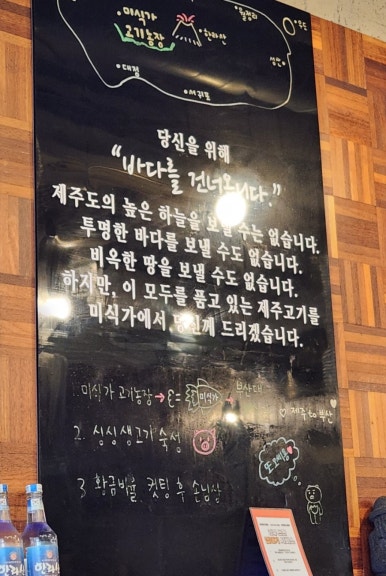 미식가
고기농장
한라산
월정리
우도
성산
대정
서귀포
당신을 위해
"바다를 건너옵니다."
제주도의 높은 하늘을 보낼 수는 없습니다.
투명한 바다를 보낼 수도 없습니다.
비옥한 땅을 보낼 수도 없습니다.
하지만, 이 모두를 품고 있는 제주고기를
미식가에서 당신께 드리겠습니다.
1. 미식가 고기농장 → 미식가 → 부산대
♡ 제주 to 부산 ♡
2. 싱싱생고기 숙성
3 황금비율 컷팅 후 손님상